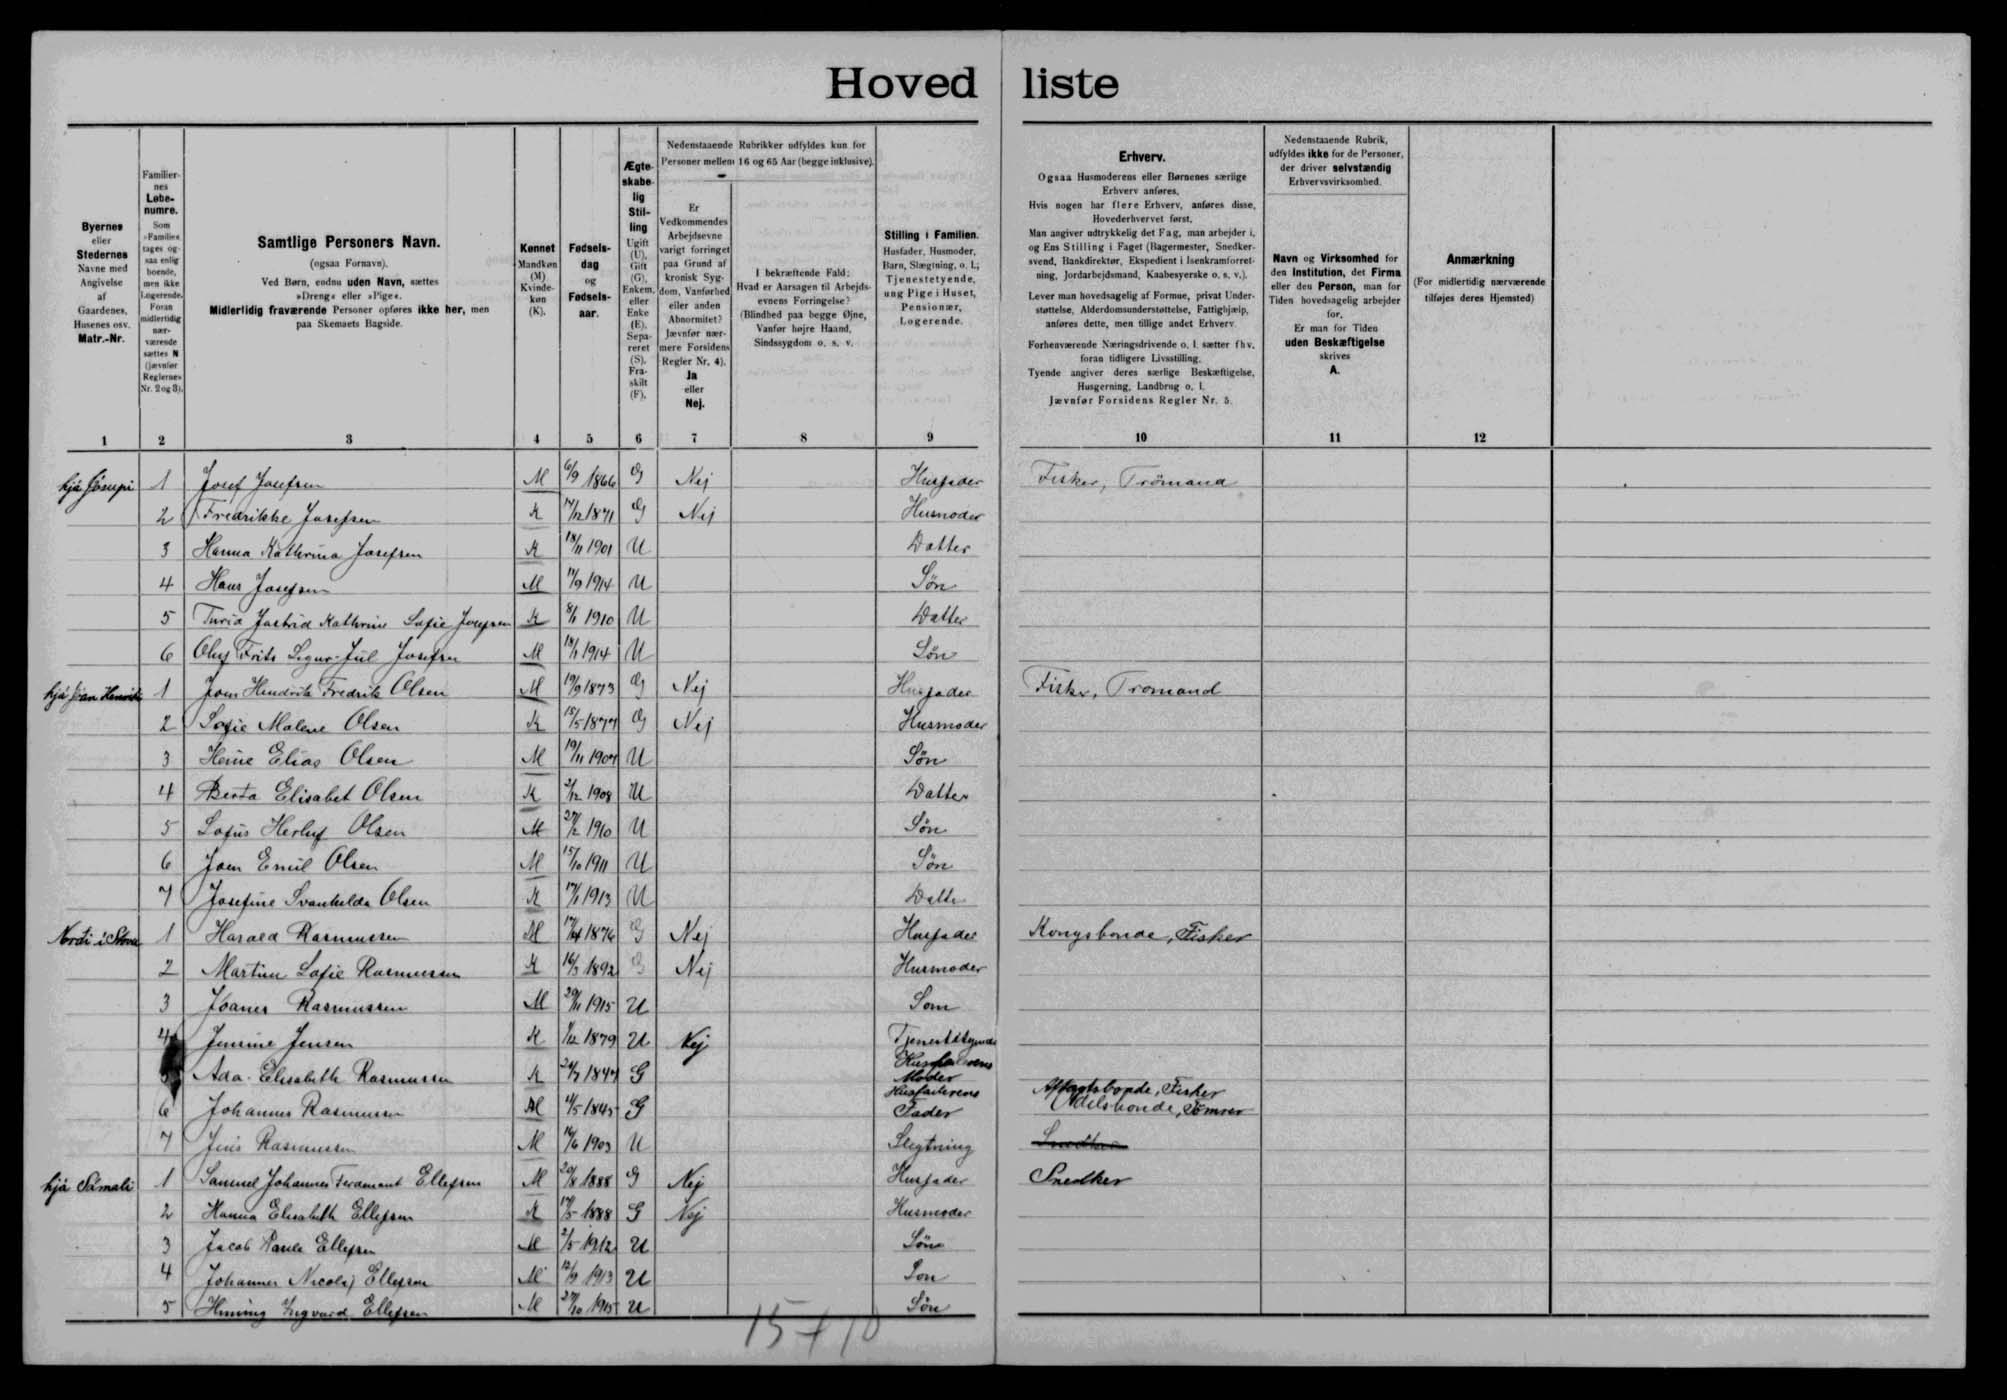 Hovedliste
Byernes eller Stedernes Navne med Angivelse af Gaardenes, Husenes osv. Matr.-Nr.
Familiernes Løbenumre. Som »Familie« tages ogsaa enlig boende, men ikke Logerende. Foran midlertidig nærværende sættes N (jævnfør Reglernes Nr. 2 og 3).
Samtlige Personers Navn. (ogsaa Fornavn). Ved Børn, endnu uden Navn, sættes »Dreng« eller »Pige«. Midlertidig fraværende Personer opføres ikke her, men paa Skemaets Bagside.
Kønnet Mandkøn (M) Kvindekøn (K).
Fødselsdag og Fødselsaar.
Ægteskabelig Stilling Ugift (U), Gift (G), Enkem. eller Enke (E), Separeret (S), Fraskilt (F).
Nedenstaaende Rubrikker udfyldes kun for Personer mellem 16 og 65 Aar (begge inklusive).
Er Vedkommendes Arbejdsevne varigt forringet paa Grund af kronisk Sygdom, Vanførhed eller anden Abnormitet? Jævnfør nærmere Forsidens Regler Nr. 4). Ja eller Nej.
I bekræftende Fald: Hvad er Aarsagen til Arbejdsevnens Forringelse? (Blindhed paa begge Øjne, Vanfør højre Haand, Sindssygdom o. s. v.
Stilling i Familien. Husfader, Husmoder, Barn, Slægtning, o. l.; Tjenestetyende, ung Pige i Huset, Pensionær, Logerende.
Erhverv.
Ogsaa Husmoderens eller Børnenes særlige Erhverv anføres.
Hvis nogen har flere Erhverv, anføres disse, Hovederhvervet først.
Man angiver udtrykkelig det Fag, man arbejder i, og Ens Stilling i Faget (Bagermester, Snedkersvend, Bankdirektør, Ekspedient i Isenkramforretning, Jordarbejdsmand, Kaabesyerske o. s. v.).
Lever man hovedsagelig af Formue, privat Understøttelse, Alderdomsunderstøttelse, Fattighjælp, anføres dette, men tillige andet Erhverv.
Forhenværende Næringsdrivende o. l. sætter fhv. foran tidligere Livsstilling.
Tyende angiver deres særlige Beskæftigelse, Husgerning, Landbrug o. l.
Jævnfør Forsidens Regler Nr. 5.
Nedenstaaende Rubrik, udfyldes ikke for de Personer, der driver selvstændig Erhvervsvirksomhed.
Navn og Virksomhed for den Institution, det Firma eller den Person, man for Tiden hovedsagelig arbejder for.
Er man for Tiden uden Beskæftigelse skrives A.
Anmærkning (For midlertidig nærværende tilføjes deres Hjemsted)
1 2 3 4 5 6 7 8 9 10 11 12
hjá Jósupi 1 Josef Josefsen M 6/9 1866 G Nej Husfader Fisker, Trömand
2 Fredrikke Josefsen K 17/12 1871 G Nej Husmoder
3 Hanna Kathrina Josefsen K 18/11 1901 U Datter
4 Hans Josefsen M 11/9 1914 U Søn
5 Turid Jastrid Kathrine Sofie Josefsen K 8/1 1910 U Datter
6 Oluf Frits Sigur-Jul Josefsen M 18/1 1914 U Søn
hjá Jóan Henrik 1 Joen Hendrik Fredrik Olsen M 19/9 1873 G Nej Husfader Fisker, Tromand
2 Sofie Malene Olsen K 15/5 1877 G Nej Husmoder
3 Heine Elias Olsen M 19/11 1907 U Søn
4 Berta Elisabet Olsen K 2/12 1908 U Datter
5 Sofus Herluf Olsen M 27/2 1910 U Søn
6 Joen Emil Olsen M 15/10 1911 U Søn
7 Josefine Svanhilda Olsen K 17/1 1913 U Datter
Norði í Stovu 1 Harald Rasmussen M 17/4 1876 G Nej Husfader Kongsbonde, Fisker
2 Martine Sofie Rasmussen K 16/3 1892 G Nej Husmoder
3 Joanes Rasmussen M 29/11 1915 U Søn
4 Jensine Jensen K 1/12 1879 U Nej Tjenestetyende
5 Ada Elisabeth Rasmussen K 24/7 1847 G Husfaderens Moder
6 Johannes Rasmussen M 4/5 1845 G Husfaderens Fader Aftagtsbonde, Fisker Odelsbonde, Tömrer
7 Jens Rasmussen M 16/6 1903 U Slegtning Snedker
hjá Sámali 1 Samuel Johannes Ferdinant Ellefsen M 20/8 1888 G Nej Husfader Snedker
2 Hanna Elisabeth Ellefsen K 17/5 1888 G Nej Husmoder
3 Jacob Paule Ellefsen M 2/5 1912 U Søn
4 Johannes Nicolaj Ellefsen M 12/9 1913 U Søn
5 Hening Ingvard Ellefsen M 27/10 1915 U Søn
15 + 10